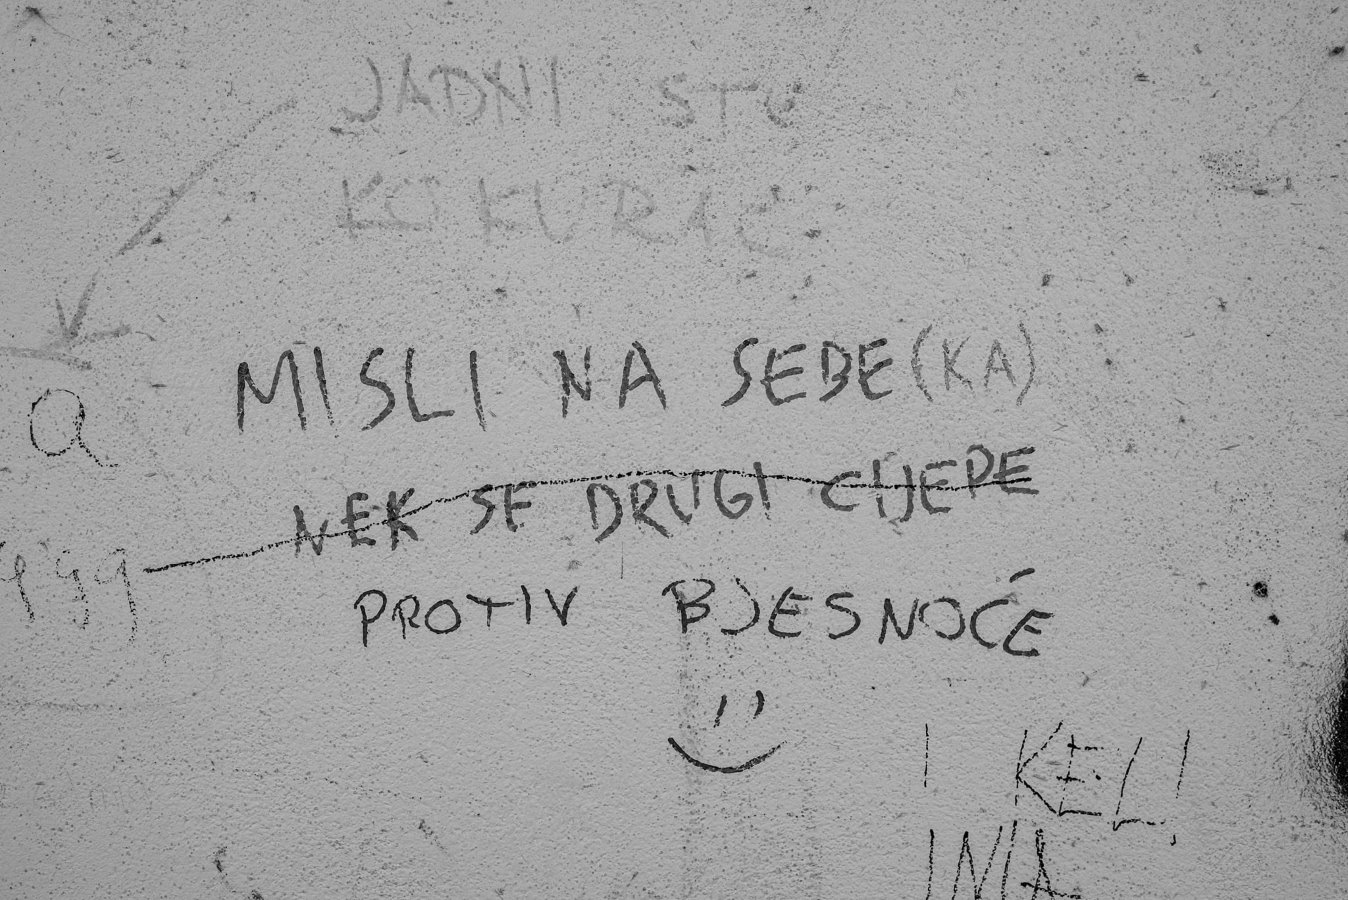 JADNI STU
KO KURAC
MISLI NA SEBE(KA)
Q
NEK SE DRUGI CIJEPE
PROTIV BJESNOĆE
I KEL!